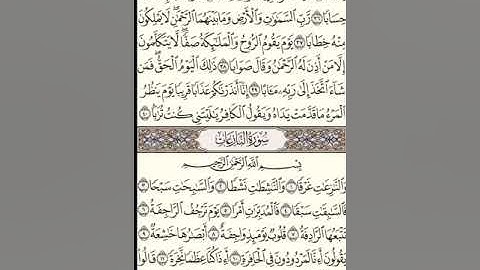 حِسَابًا ٣٦ رَّبِّ السَّمَٰوَٰتِ وَالْأَرْضِ وَمَا بَيْنَهُمَا الرَّحْمَٰنِ لَا يَمْلِكُونَ
مِنْهُ خِطَابًا ٣٧ يَوْمَ يَقُومُ الرُّوحُ وَالْمَلَٰٓئِكَةُ صَفًّا لَّا يَتَكَلَّمُونَ
إِلَّا مَنْ أَذِنَ لَهُ الرَّحْمَٰنُ وَقَالَ صَوَابًا ٣٨ ذَٰلِكَ الْيَوْمُ الْحَقُّ فَمَن
شَآءَ اتَّخَذَ إِلَىٰ رَبِّهِ مَـَٔابًا ٣٩ إِنَّآ أَنذَرْنَٰكُمْ عَذَابًا قَرِيبًا يَوْمَ يَنظُرُ
الْمَرْءُ مَا قَدَّمَتْ يَدَاهُ وَيَقُولُ الْكَافِرُ يَٰلَيْتَنِي كُنتُ تُرَٰبًۢا ٤٠
سُورَةُ النَّازِعَاتِ
بِسْمِ اللَّهِ الرَّحْمَٰنِ الرَّحِيمِ
وَالنَّٰزِعَٰتِ غَرْقًا ١ وَالنَّٰشِطَٰتِ نَشْطًا ٢ وَالسَّٰبِحَٰتِ سَبْحًا ٣
فَالسَّٰبِقَٰتِ سَبْقًا ٤ فَالْمُدَبِّرَٰتِ أَمْرًا ٥ يَوْمَ تَرْجُفُ الرَّاجِفَةُ ٦
تَتْبَعُهَا الرَّادِفَةُ ٧ قُلُوبٌ يَوْمَئِذٍ وَاجِفَةٌ ٨ أَبْصَٰرُهَا خَٰشِعَةٌ ٩
يَقُولُونَ أَءِنَّا لَمَرْدُودُونَ فِي الْحَافِرَةِ ١٠ أَءِذَا كُنَّا عِظَٰمًا نَّخِرَةً ١١ قَالُوا